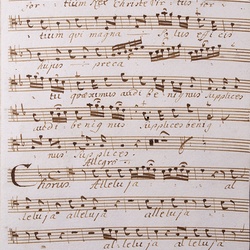 for - tium Rex Christe Vir tus for
tium qui magna Solus efficis
aujus - preca
tu quaesumus audi Benignus supplices
audi benignus supplices benig
nus supplices.
Allegro
Chorus Alleluja al
leluja alleluja alleluja
alleluja alleluja